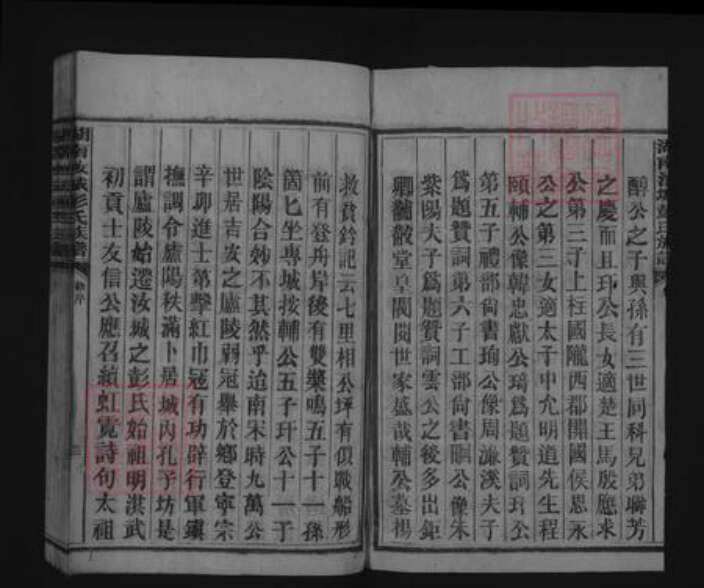 醇公之子與孫有三世同科兄弟聯芳
之慶而且玕公長女適楚王馬殷應求
公第三子上柱國隴西郡開國侯恩永
公之第三女適太子中允明道先生程
頤輔公像韓忠獻公琦爲題贊詞玕公
第五子禮部尚書瑜公像周濂溪夫子
爲題贊詞第六子工部尚書公像朱
紫陽夫子爲題贊詞雲公之後多出鉅
卿黼黻堂皇閥閱世家甚哉輔公墓楊
救貧鈐記云七里相公坪有似戰船形
前有登舟岸後有雙槳鳴五子十一孫
箇匕坐專城按輔公五子玕公十一子
陰陽合妙不其然乎迨南宋時九萬公
世居吉安之廬陵弱冠舉於鄉登寧宗
辛卯進士第擊紅巾冠有功辟行軍鎮
撫調令廬陽秩滿卜居城內孔子坊是
謂廬陵始遷汝城之彭氏始祖明洪武
初貢士友信公應召續虹霓詩句太祖
湖南汝城彭氏族譜